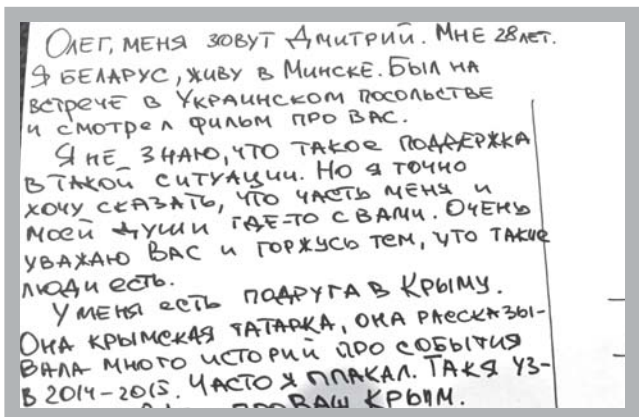 Олег, меня зовут Дмитрий. Мне 28 лет.
Я беларус, живу в Минске. Был на
встрече в Украинском посольстве
и смотрел фильм про Вас.
Я не знаю, что такое поддержка
в такой ситуации. Но я точно
хочу сказать, что часть меня и
моей души где-то с Вами. Очень
уважаю Вас и горжусь тем, что такие
люди есть.
У меня есть подруга в Крыму.
Она крымская татарка, она рассказы-
вала много историй про события
в 2014-2015. Часто я плакал. Так я уз-
про Ваш Крым.